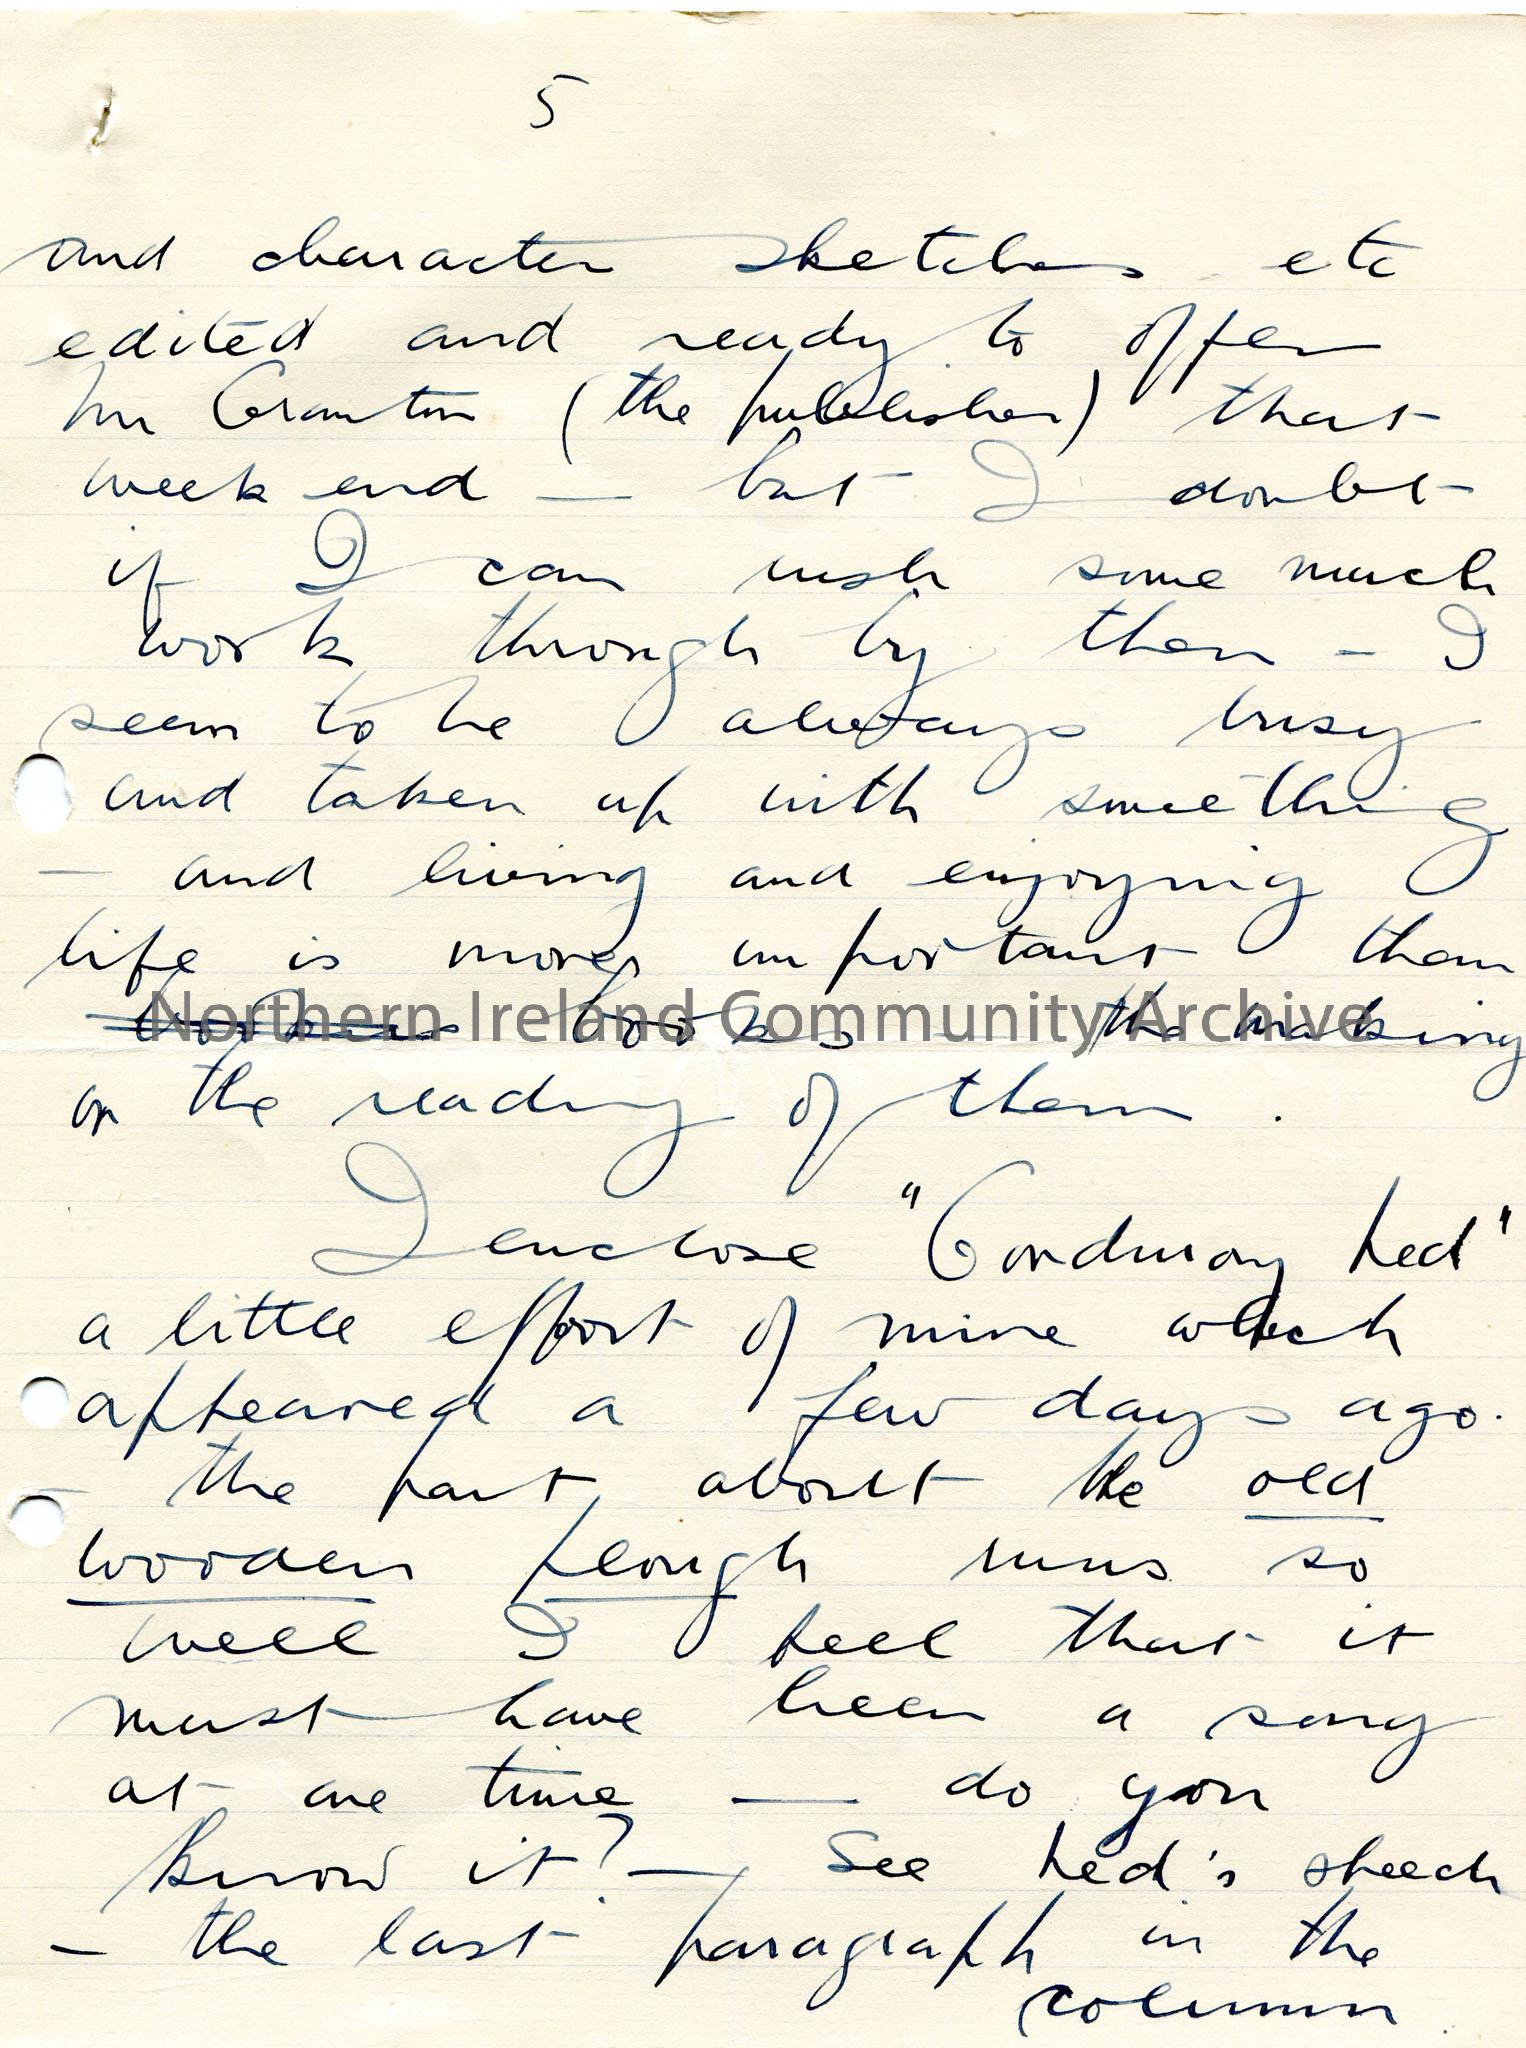 5
and character sketches etc
edited and ready to offer
Mr Cranton (the publisher) that
week end — but I doubt
if I can rush some much
work through by then — I
seem to be always busy
and taken up with something
— and living and enjoying
life is more important than
books — the making
or the reading of them.
I enclose "Corduroy
a little effort of mine which
appeared a few days ago.
— the part about the old
wooden plough runs so
well I feel that it
must have been a song
at one time — do you
know it? — See speech
— the last paragraph in the
column.
Northern Ireland Community Archive